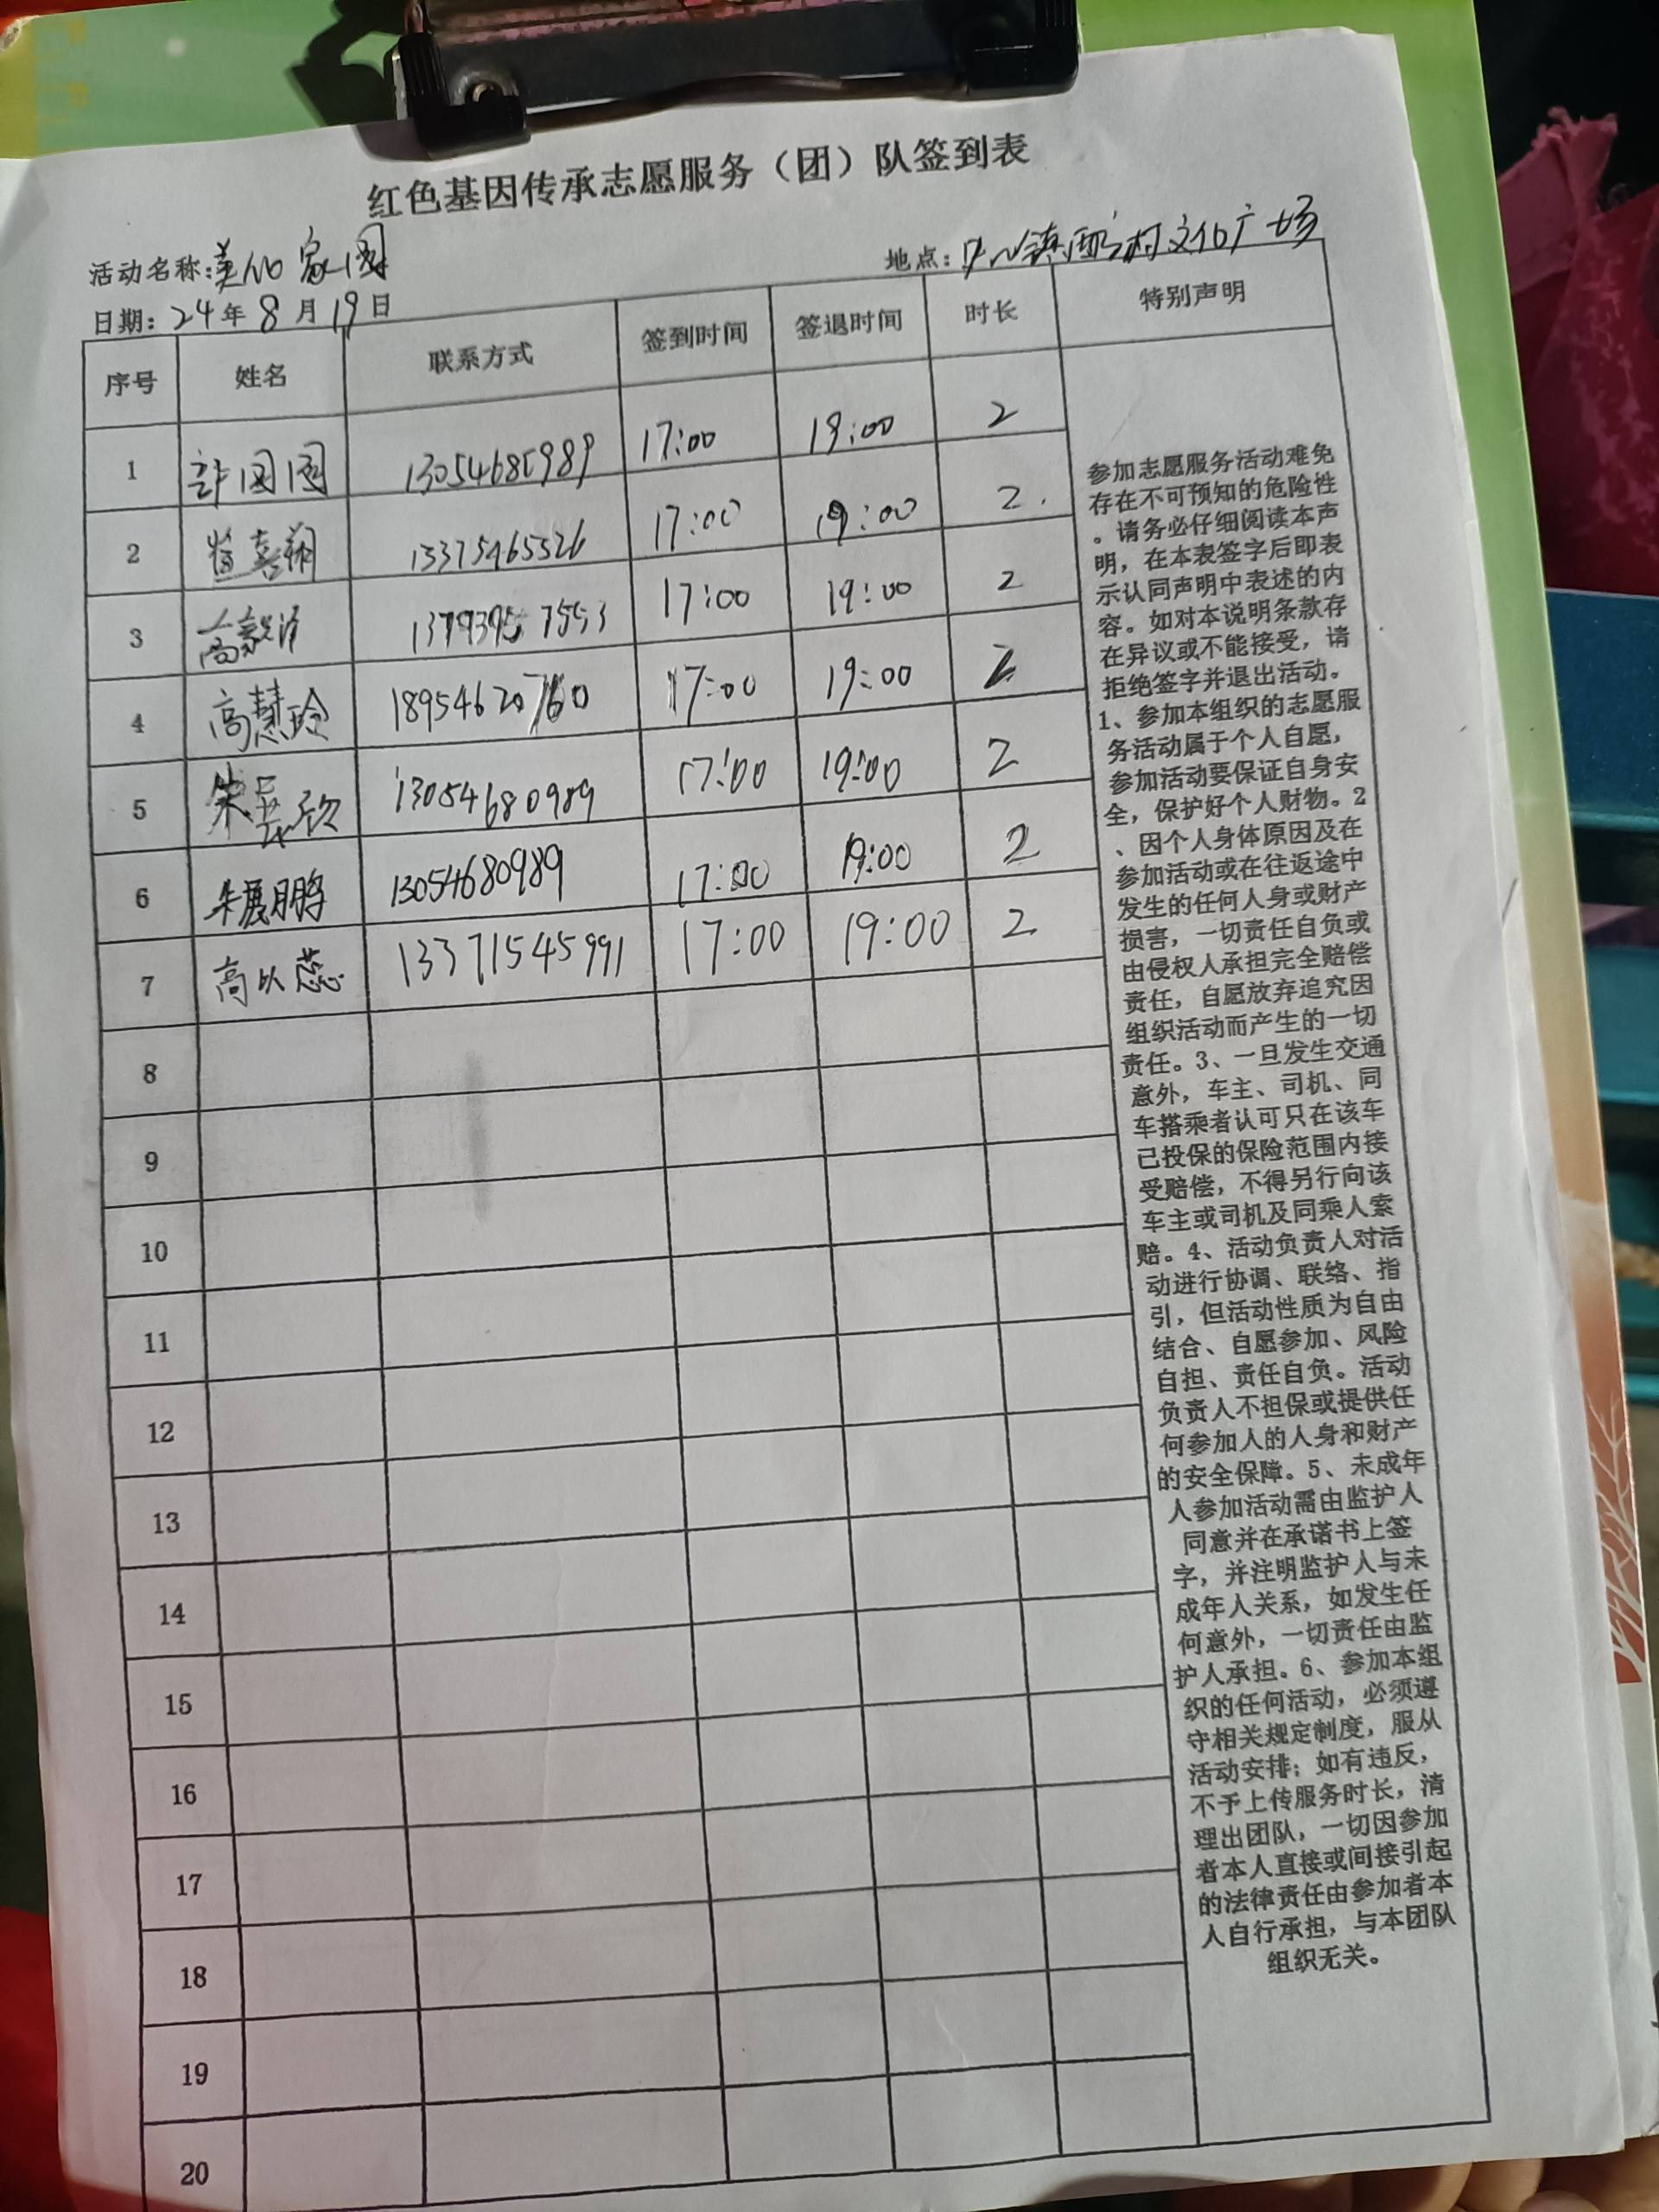 红色基因传承志愿服务（团）队签到表
活动名称:美化家园
地点: 镇 村文化广场
日期: 24年8月19日
序号 姓名 联系方式 签到时间 签退时间 时长 特别声明
1 许园园 13054680989 17:00 19:00 2
2 喜翔 15375465526 17:00 19:00 2.
3 高 泽 7553 17:00 19:00 2
4 高慧玲 18954620760 17:00 19:00 2
5 朱 欣 13054680989 17:00 19:00 2
6 朱展鹏 13054680989 17:00 19:00 2
7 高以蕊 13371545991 17:00 19:00 2
8
9
10
11
12
13
14
15
16
17
18
19
20
参加志愿服务活动难免
存在不可预知的危险性
。请务必仔细阅读本声
明，在本表签字后即表
示认同声明中表述的内
容。如对本说明条款存
在异议或不能接受，请
拒绝签字并退出活动。
1、参加本组织的志愿服
务活动属于个人自愿，
参加活动要保证自身安
全，保护好个人财物。2
、因个人身体原因及在
参加活动或在往返途中
发生的任何人身或财产
损害，一切责任自负或
由侵权人承担完全赔偿
责任，自愿放弃追究因
组织活动而产生的一切
责任。3、一旦发生交通
意外，车主、司机、同
车搭乘者认可只在该车
已投保的保险范围内接
受赔偿，不得另行向该
车主或司机及同乘人索
赔。4、活动负责人对活
动进行协调、联络、指
引，但活动性质为自由
结合、自愿参加、风险
自担、责任自负。活动
负责人不担保或提供任
何参加人的人身和财产
的安全保障。5、未成年
人参加活动需由监护人
同意并在承诺书上签
字，并注明监护人与未
成年人关系，如发生任
何意外，一切责任由监
护人承担。6、参加本组
织的任何活动，必须遵
守相关规定制度，服从
活动安排；如有违反，
不予上传服务时长，清
理出团队，一切因参加
者本人直接或间接引起
的法律责任由参加者本
人自行承担，与本团队
组织无关。